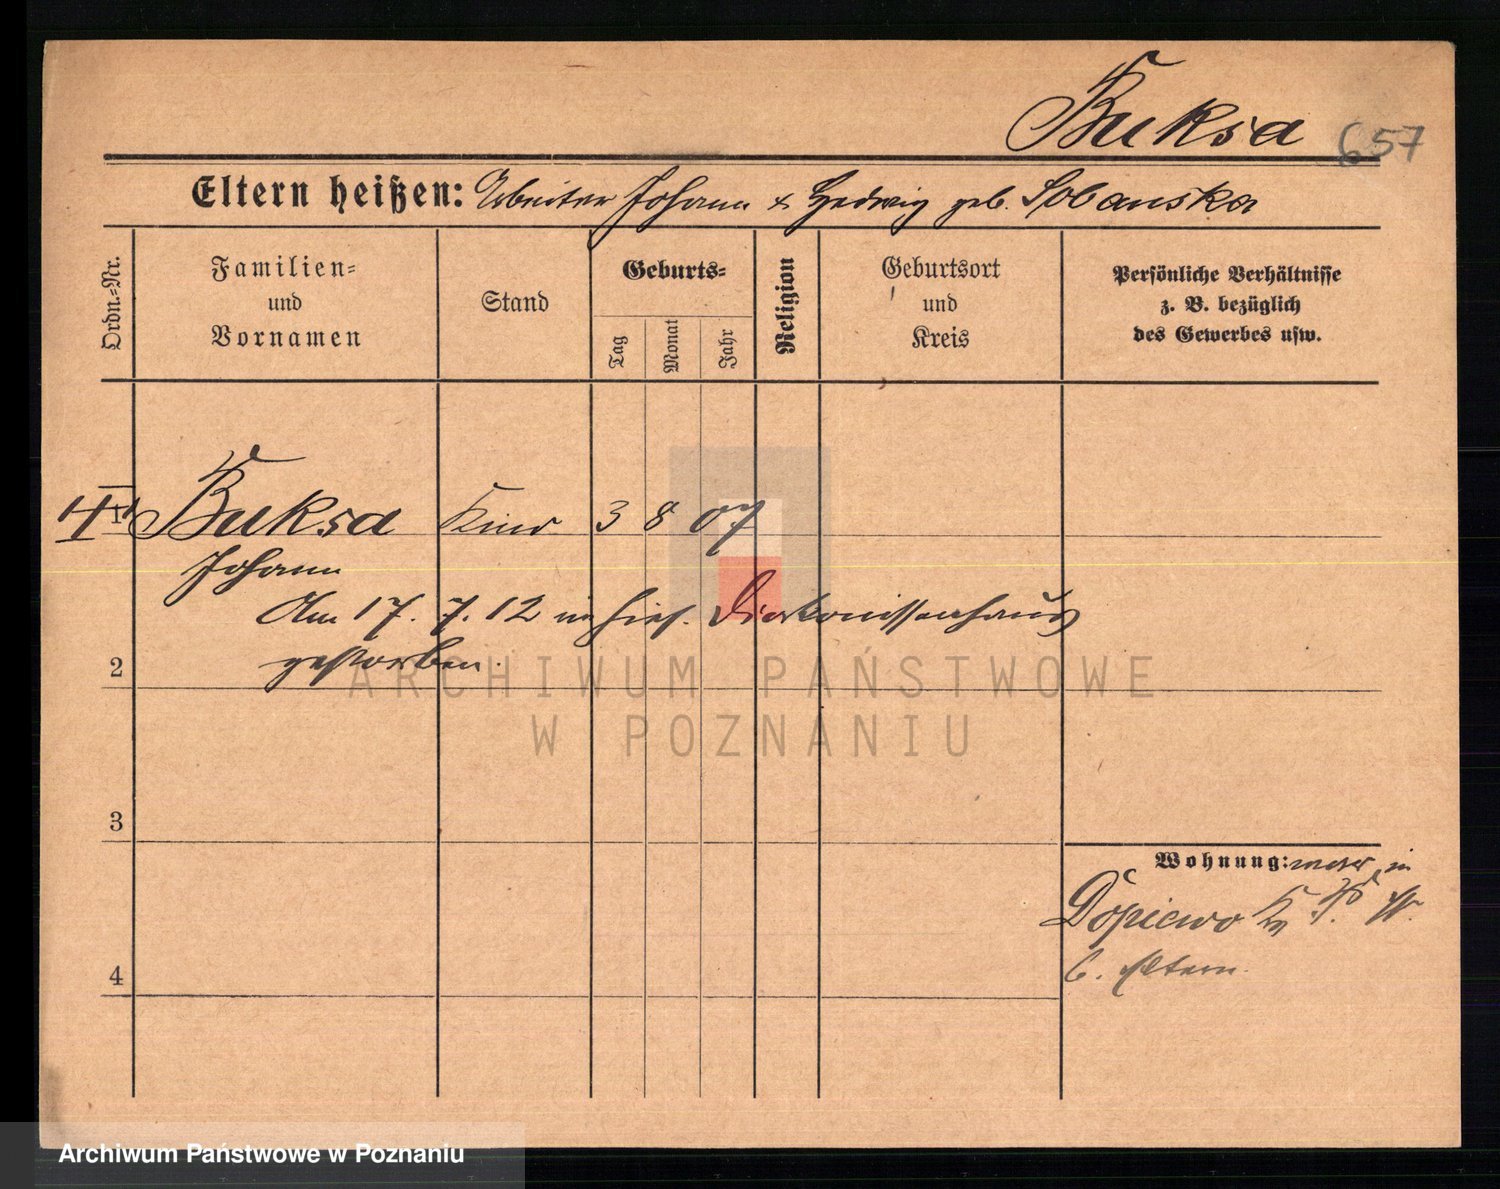 Buksa 657
Eltern heißen: Arbeiter Johann & Hedwig geb. Sobanska
Ordn.=Nr.
Familien=
und
Vornamen
Stand
Geburts=
Tag
Monat
Jahr
Religion
Geburtsort
und
Kreis
Persönliche Verhältnisse
z. B. bezüglich
des Gewerbes usw.
Buksa Kind 3 8 07
Johann
Am 17. 7. 12 im hies. Diakonissenhaus
gestorben.
2
3
4
Wohnung: war in
Dopiewo Kr P. W.
b. Eltern.
ARCHIWUM PAŃSTWOWE
W POZNANIU
Archiwum Państwowe w Poznaniu